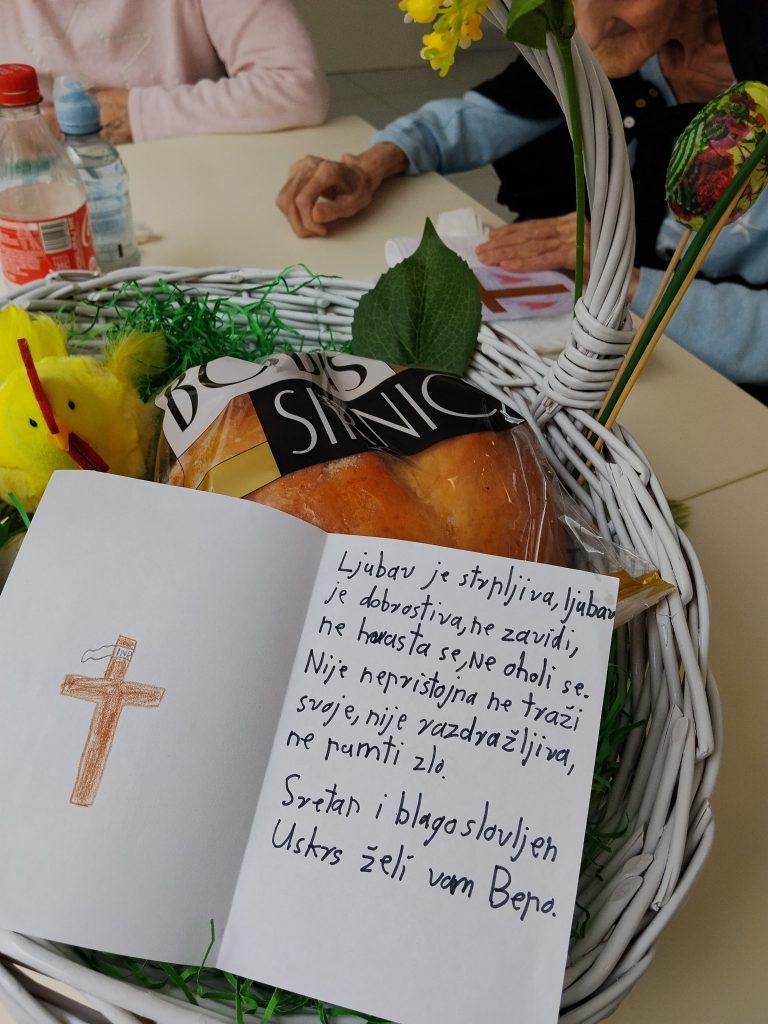 SIRNIC
INR
Ljubav je strpljiva, ljubav
je dobrostiva, ne zavidi,
ne hvasta se, Ne oholi se.
Nije nepristojna ne traži
svoje, nije razdražljiva,
ne pamti zlo.
Sretan i blagoslovljen
Uskrs želi vam Bepo.